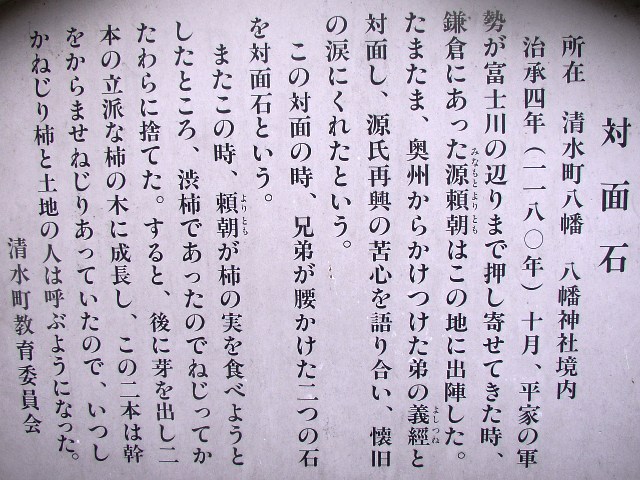 対面石
所在 清水町八幡 八幡神社境内
治承四年(一一八〇年)十月、平家の軍
勢が富士川の辺りまで押し寄せてきた時、
鎌倉にあった源頼朝はこの地に出陣した。
みなもとよりとも
たまたま、奥州からかけつけた弟の義經と
よしつね
対面し、源氏再興の苦心を語り合い、懐旧
の涙にくれたという。
この対面の時、兄弟が腰かけた二つの石
を対面石という。
またこの時、頼朝が柿の実を食べようと
よりとも
したところ、渋柿であったのでねじってか
たわらに捨てた。すると、後に芽を出し二
本の立派な柿の木に成長し、この二本は幹
をからませねじりあっていたので、いつし
かねじり柿と土地の人は呼ぶようになった。
清水町教育委員会